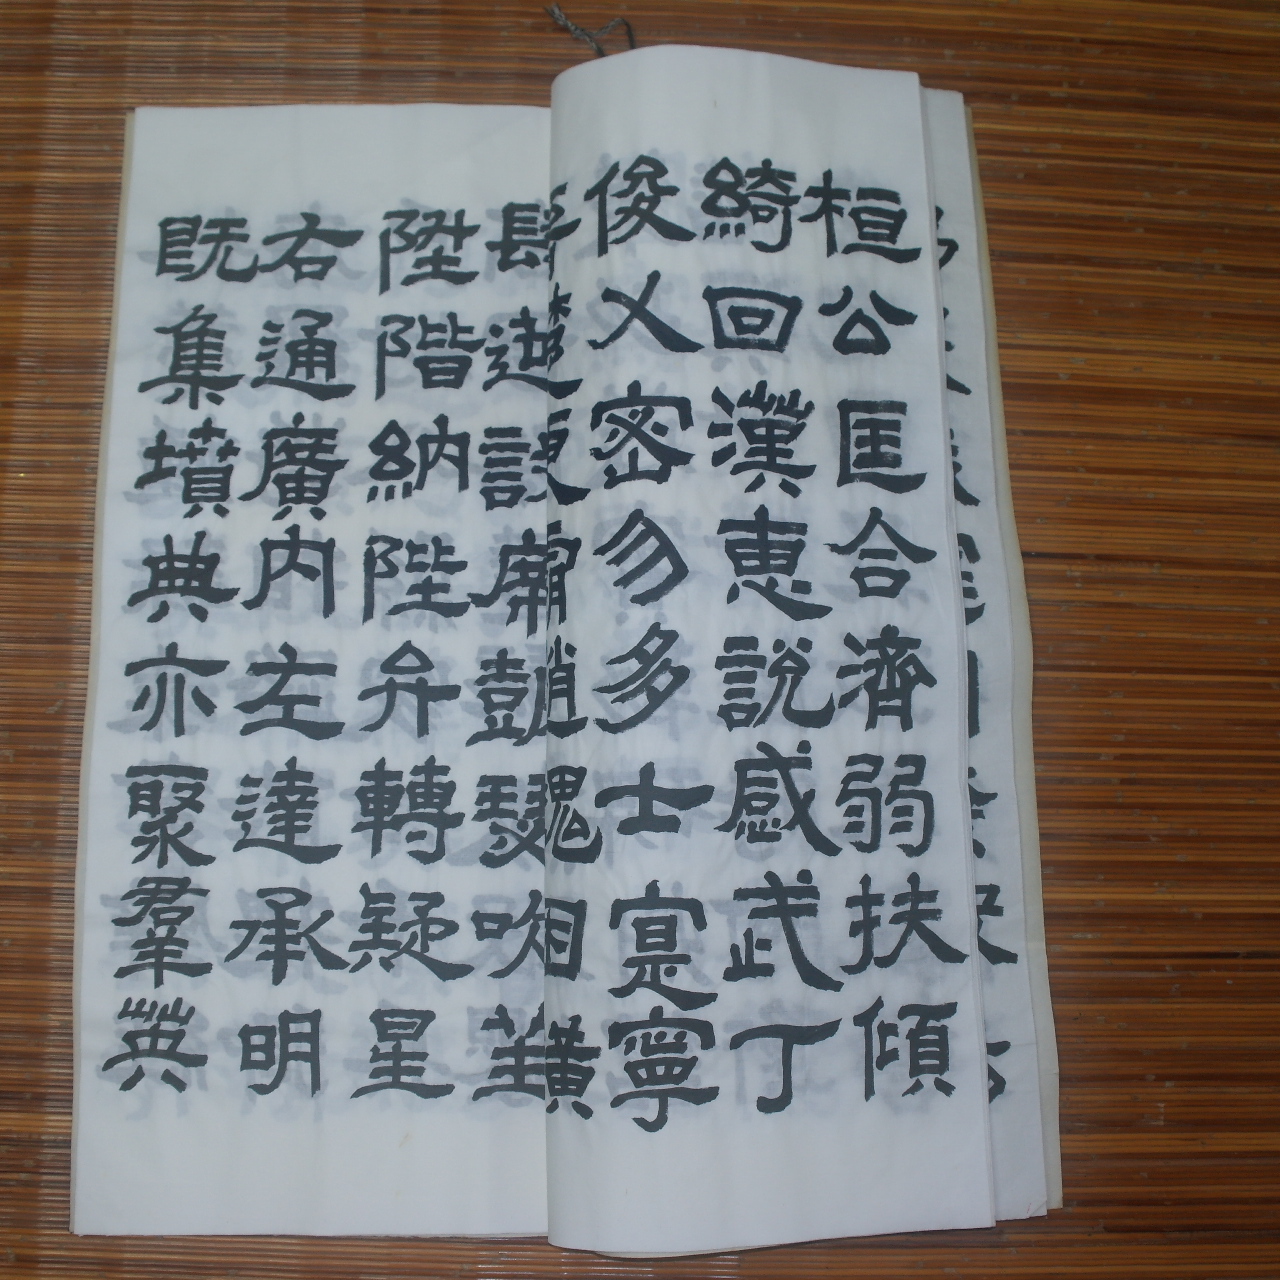 桓公匡合濟弱扶傾
綺回漢恵說感武丁
俊乂密勿多士寔寧
陞階納陛弁轉疑星
右通廣內左達承明
既集墳典亦聚羣英